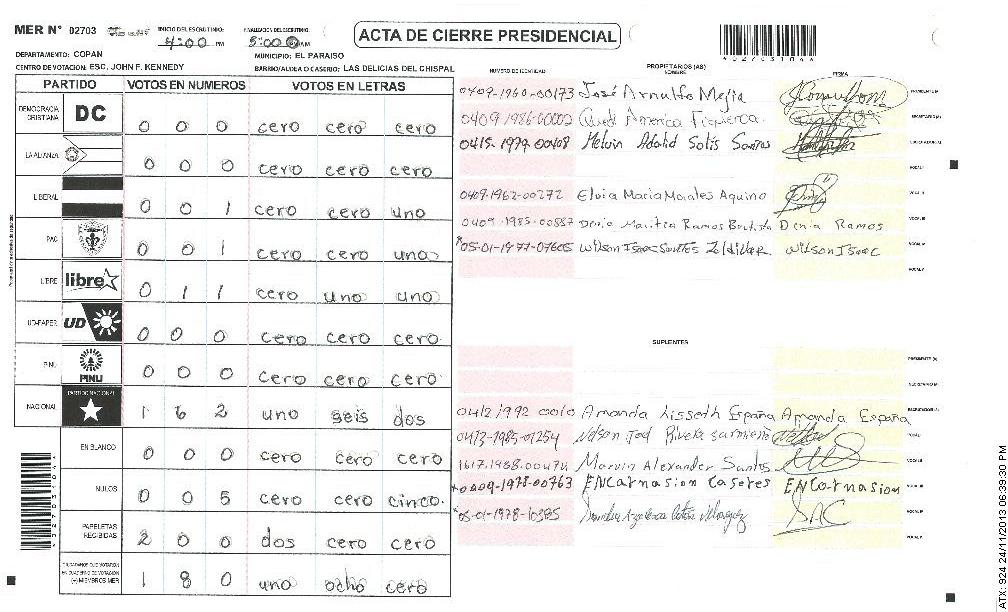 MER N° 02703 INICIO DEL ESCRUTINIO: 4:00 PM FINALIZACION DEL ESCRUTINIO: 5:00 AM
ACTA DE CIERRE PRESIDENCIAL
DEPARTAMENTO: COPAN MUNICIPIO: EL PARAISO
CENTRO DE VOTACIÓN: ESC. JOHN F. KENNEDY BARRIO/ALDEA O CASERIO: LAS DELICIAS DEL CHISPAL
PARTIDO VOTOS EN NUMEROS VOTOS EN LETRAS
DEMOCRACIA CRISTIANA DC 0 0 0 cero cero cero
LA ALIANZA 0 0 0 cero cero cero
LIBERAL 0 0 1 cero cero uno
PAC 0 0 1 cero cero uno
LIBRE libre 0 1 1 cero uno uno
UD-FAPER UD 0 0 0 cero cero cero
PINU PINU 0 0 0 cero cero cero
NACIONAL PARTIDO NACIONAL 1 6 2 uno seis dos
EN BLANCO 0 0 0 cero cero cero
NULOS 0 0 5 cero cero cinco
PAPELETAS RECIBIDAS 2 0 0 dos cero cero
CIUDADANOS QUE VOTARON EN CUADERNO DE VOTACION (+) MIEMBROS MER 1 8 0 uno ocho cero
NUMERO DE IDENTIDAD PROPIETARIOS (AS) NOMBRE FIRMA
0409-1960-00173 José Arnulfo Mejia
0409-1986-00002 America Figueroa
0415-1979-00408 Melvin Adalid Solis Santos
0409-1962-00272 Elvia Maria Morales Aquino
0409-1985-00887 Denia Maritza Ramos Bautista Denia Ramos
05-01-1977-07605 Wilson Isaac Santos Wilson Isaac
SUPLENTES
0412 1992 00010 Amanda Lisseth España Amanda España
0413-1985-01254 Nelson Joel Rivera Sarmiento
1617-1988-00474 Marvin Alexander Santos
0409-1978-00763 ENCarnasion Caseres ENCarnasion
05-01-1978-10385
ATX: 924 24/11/2013 06:39:30 PM